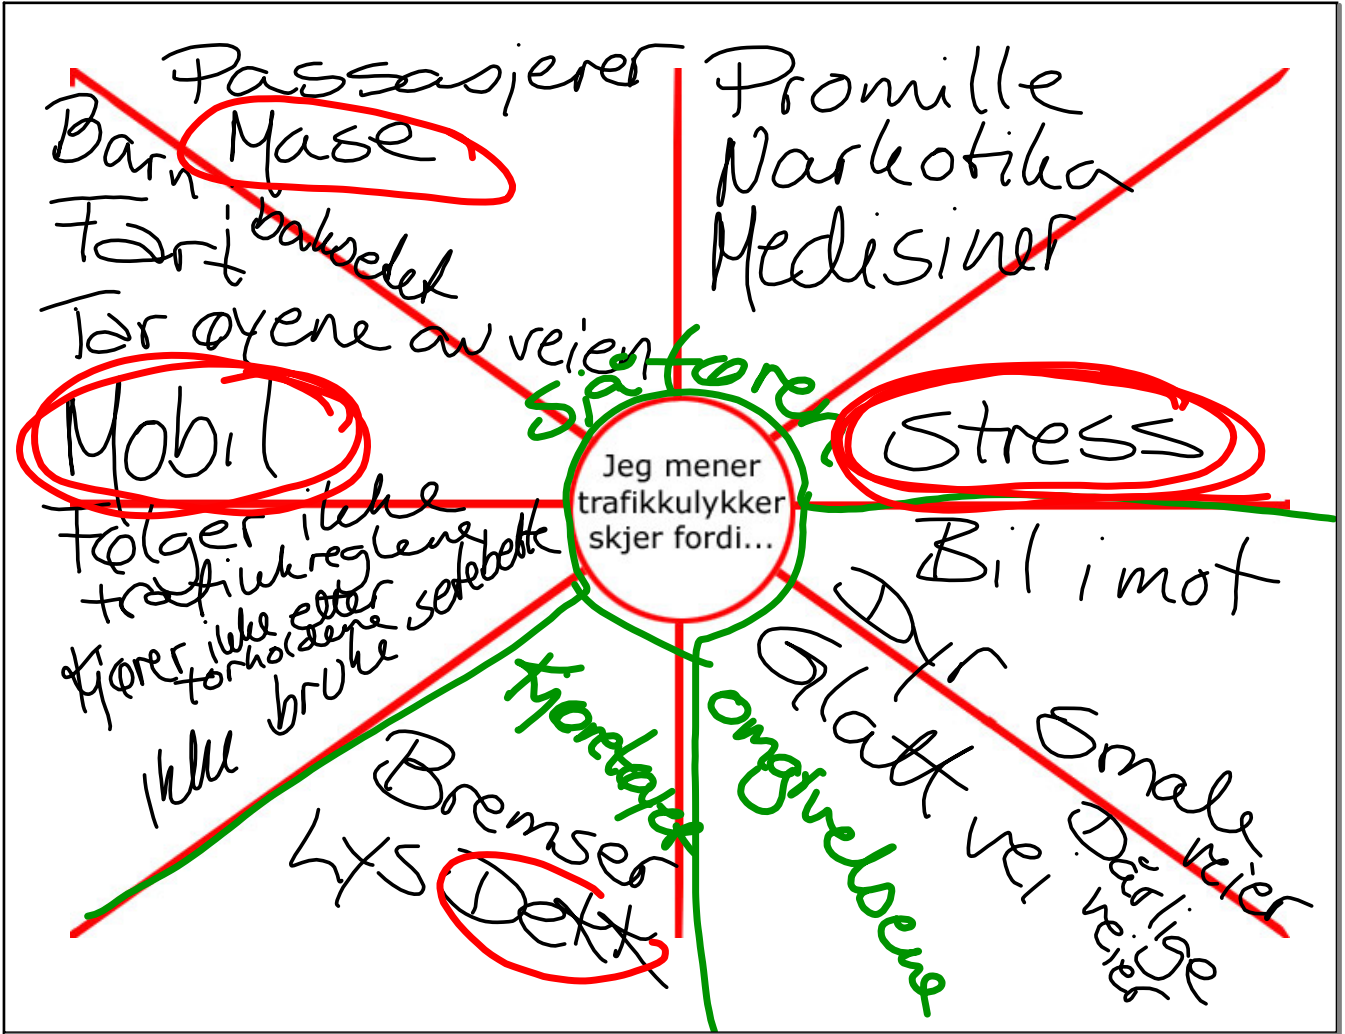 Passasjerer
Mase
Barn
i baksetet
Fart
Tar øyene av veien
Mobil
Følger ikke
trafikkreglene
Kjører ikke etter
forholdene
ikke bruke setebelte
Promille
Narkotika
Medisiner
Sjåføren
stress
Jeg mener
trafikkulykker
skjer fordi...
Bil imot
Dyr
Glatt vei
Smale veier
Dårlige
veier
omgivelsene
Kjøretøyet
Bremser
Lys
Dekk